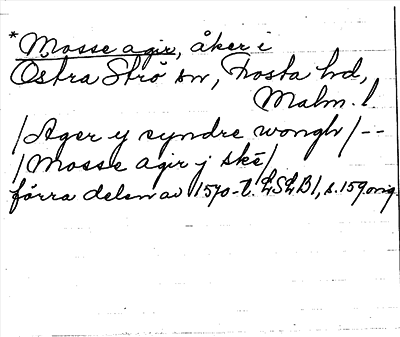 *Mosse agir, åker i
Östra Strö sn, Frosta hd,
Malm. l
/Ager y syndre wongh/--
/Mosse agir j skē/
förra delen av 1570-t. LSLB1, s. 159 orig.